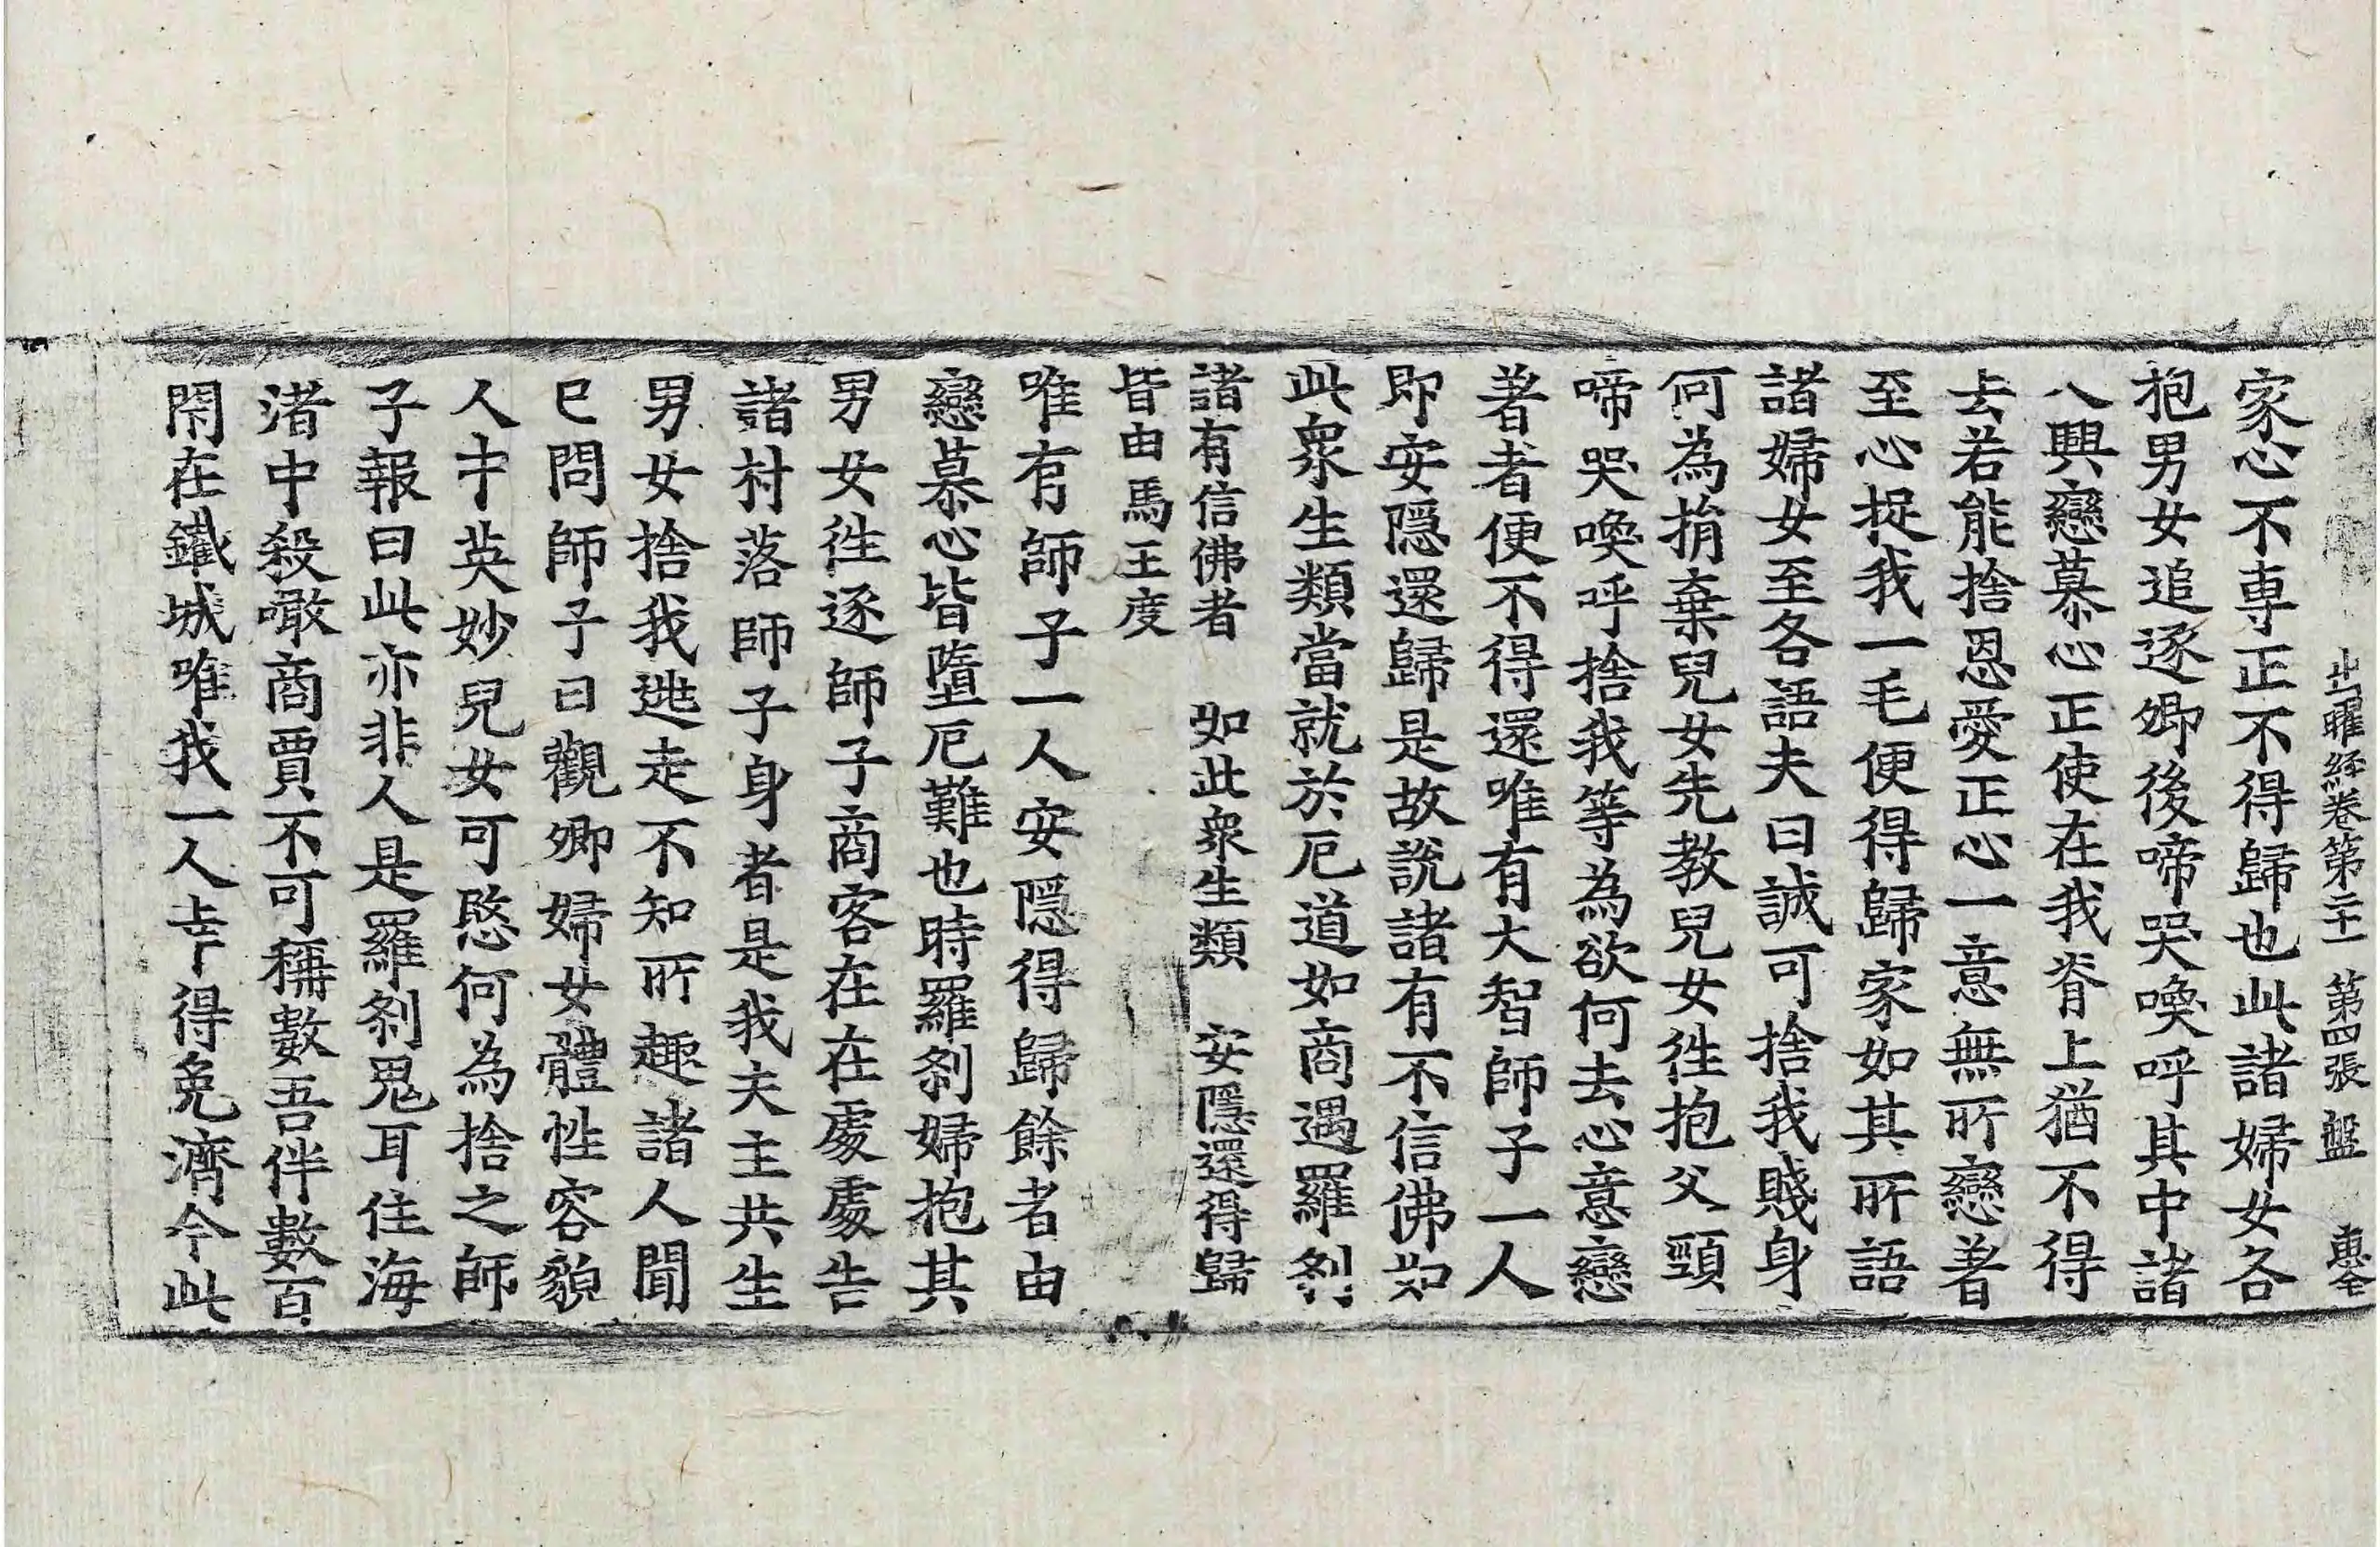 出曜経卷第二十一 第四張 盤 惠全
家心不専正不得歸也此諸婦女各
抱男女追逐卿後啼哭喚呼其中諸
人興戀慕心正使在我脊上猶不得
去若能捨恩愛正心一意無所戀著
至心捉我一毛便得歸家如其所語
諸婦女至各語夫曰誠可捨我賤身
何為捐棄兒女先教兒女徃抱父頸
啼哭喚呼捨我等為欲何去心意戀
著者便不得還唯有大智師子一人
即安隠還歸是故說諸有不信佛如
此衆生類當就於厄道如商遇羅剎
諸有信佛者 如此衆生類 安隠還得歸
皆由馬王度
唯有師子一人安隠得歸餘者由
戀慕心皆墮厄難也時羅剎婦抱其
男女徃逐師子商客在在處處告
諸村落師子身者是我夫主共生
男女捨我逃走不知所趣諸人聞
已問師子曰觀卿婦女體性容貌
人中英妙兒女可愍何為捨之師
子報曰此亦非人是羅剎鬼耳住海
渚中殺噉商賈不可稱數吾伴數百
閉在鐵城唯我一人幸得免濟今此